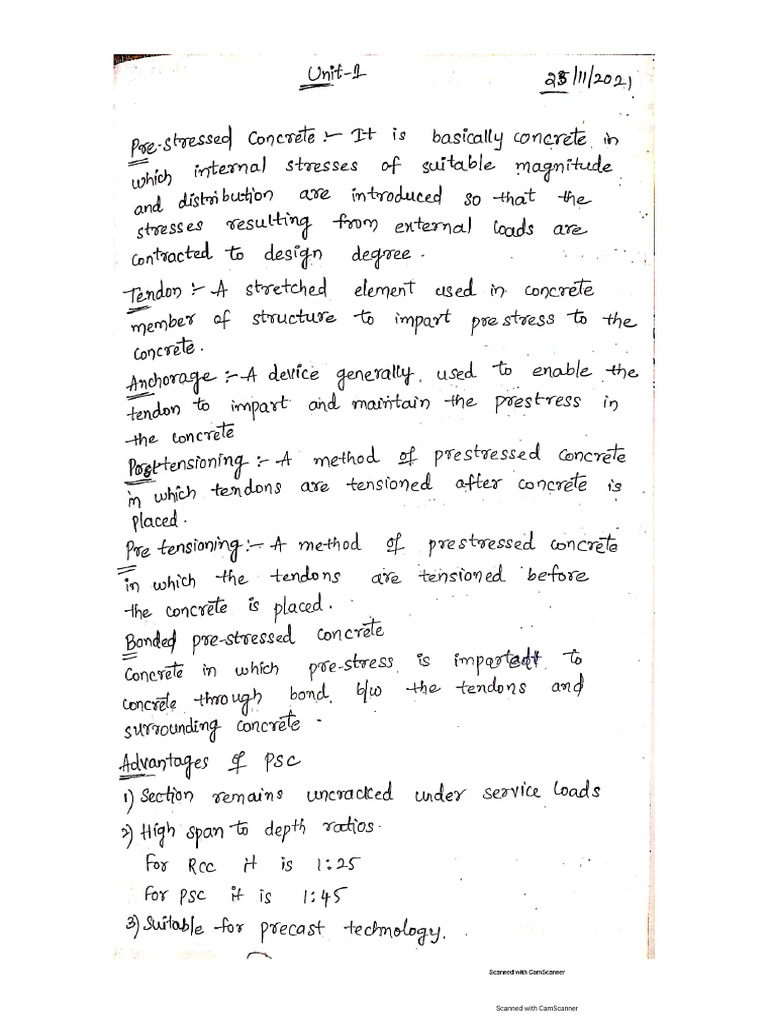 Unit-1
25/11/2021
Pre-stressed Concrete :- It is basically concrete in
which internal stresses of suitable magnitude
and distribution are introduced so that the
stresses resulting from external loads are
contracted to design degree.
Tendon :- A stretched element used in concrete
member of structure to impart prestress to the
concrete.
Anchorage :- A device generally used to enable the
tendon to impart and maintain the prestress in
the concrete
Posttensioning :- A method of prestressed concrete
in which tendons are tensioned after concrete is
placed.
Pre tensioning :- A method of prestressed concrete
in which the tendons are tensioned before
the concrete is placed.
Bonded pre-stressed concrete
Concrete in which pre-stress is imparted to
concrete through bond b/w the tendons and
surrounding concrete.
Advantages of PSC
1) Section remains uncracked under service loads
2) High span to depth ratios.
For RCC it is 1:25
For PSC it is 1:45
3) Suitable for precast technology.
Scanned with CamScanner
Scanned with CamScanner